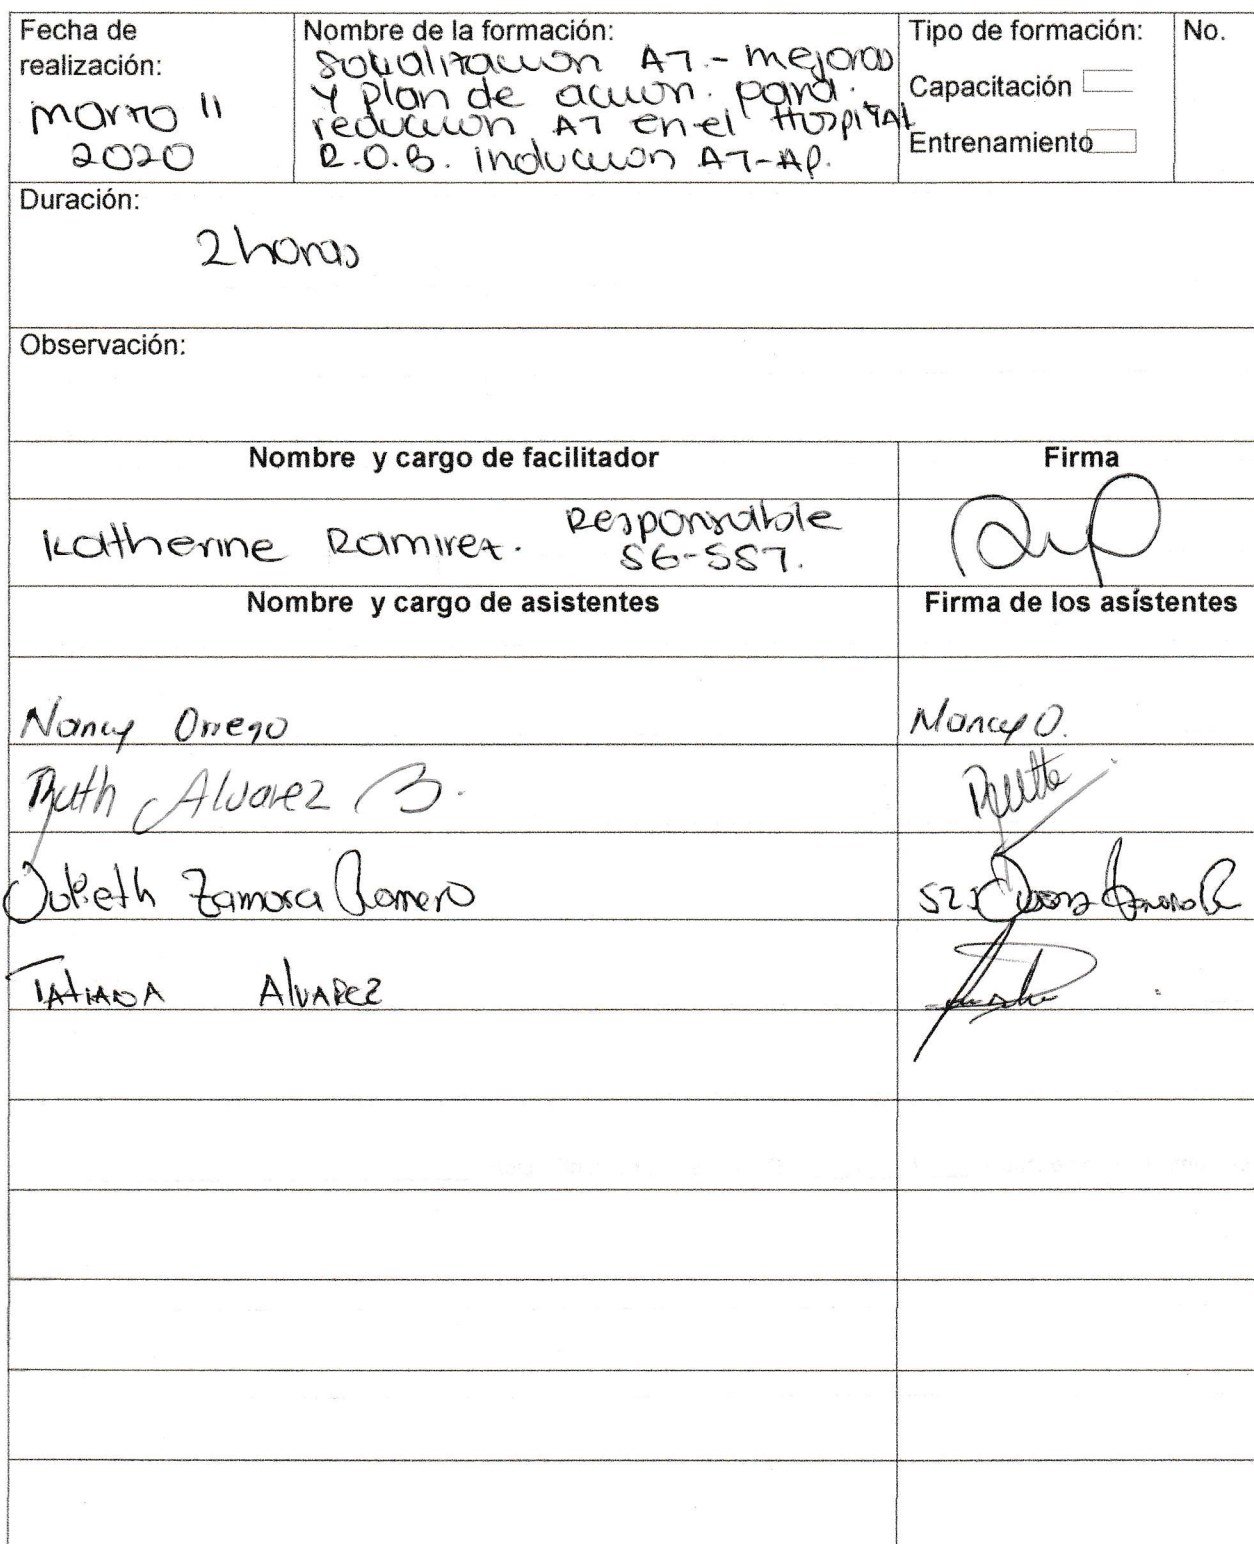 Fecha de realización:
marzo 11
2020
Nombre de la formación:
Socialización AT - mejoras
y plan de acción para
reducción AT en el Hospital
R.O.B. inducción AT-AP.
Tipo de formación:
Capacitación
Entrenamiento
No.
Duración:
2 horas
Observación:
Nombre y cargo de facilitador
Firma
Katherine Ramirez. Responsable
SG-SST.
Nombre y cargo de asistentes
Firma de los asistentes
Nancy Orrego
Nancy O.
Ruth Alvarez B.
Julieth Zamora Romero
TATIANA ALVAREZ